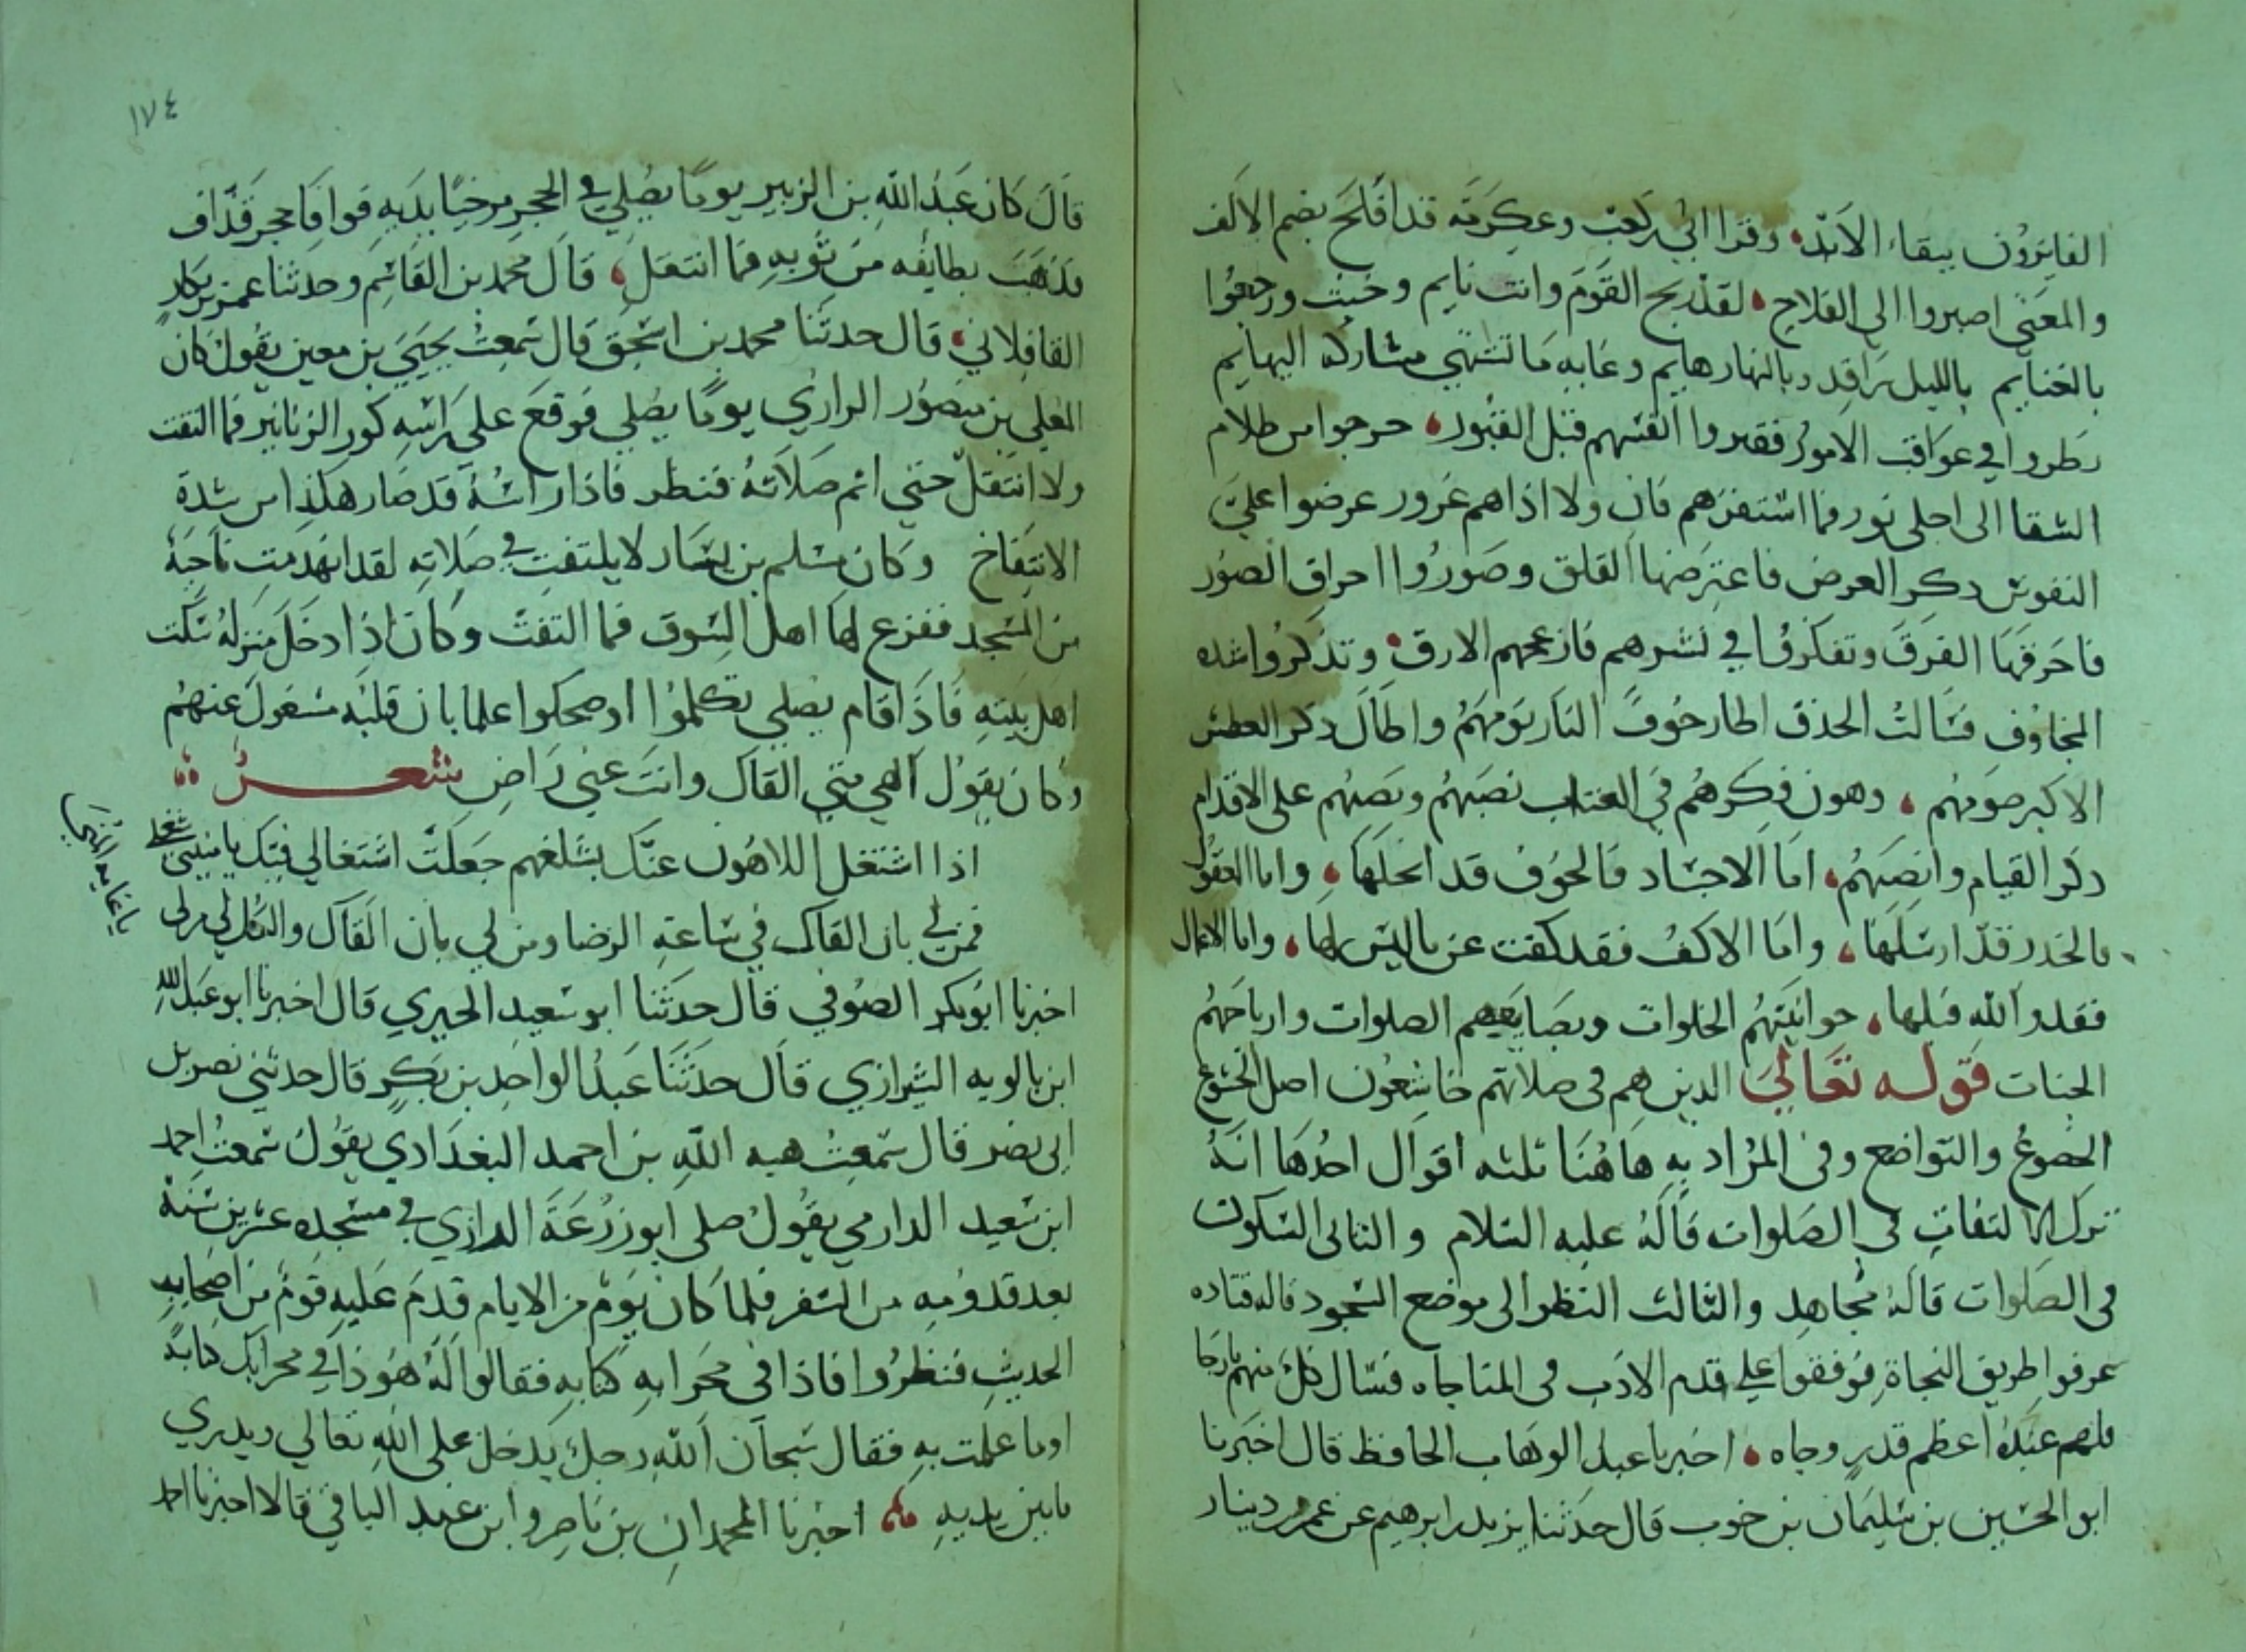 الفايزون ببقاء الابد وقرا ابي بن كعب وعكرمة قد افلح بضم الالف
والمعنى اصيروا الى الفلاح لقد ربح القوم وانت نايم وخبت ورجعوا
بالغنايم بالليل راقد وبالنهار هايم وغايه ما تشتهي مشاركه البهايم
نظروا في عواقب الامور فقبروا انفسهم قبل القبور خرجوا من ظلام
الشقا الى اجلى نور فما استفزهم فان ولا اذاهم غرور عرضوا على
النفوس ذكر العرض فاعترضها القلق وصوروا احراق الصور
فاحرقها الفرق وتفكروا في نشرهم فازعجهم الارق وتذكروا شده
المخاوف فسالت الحدق اطار خوف النار نومهم واطال ذكر العطش
الاكبر صومهم وهون فكرهم في العتاب نصبهم ونصبهم على الاقدام
ذكر القيام وانصبهم اما الاجساد فالخوف قد انحلها واما العقول
فالحذر قد ارسلها واما الاكف فقد كفت عن ما ليس لها واما الاعمال
فقد والله قبلها حوانيتهم الخلوات وبضايعهم الصلوات وارباحهم
الجنات قوله تعالى الذين هم في صلاتهم خاشعون اصل الخشوع
الخضوع والتواضع وفي المراد به هاهنا ثلثه اقوال احدها انه
ترك الالتفات في الصلوات قاله عليه السلام والثاني السكون
في الصلوات قاله مجاهد والثالث النظر الى موضع السجود قاله قتاده
عرفوا طريق النجاة فوقفوا على قدم الادب في المناجاه فسال كل منهم ما رجا
فلهم عنده اعظم قدر وجاه اخبرنا عبد الوهاب الحافظ قال اخبرنا
ابو الحسين بن سليمان بن خوب قال حدثنا يزيد بن ابرهيم عن عمرو بن دينار
١٧٤
قال كان عبد الله بن الزبير يوما يصلي في الحجر مرخيا يديه فوافا حجر قذاف
فذهب بطايفه من ثوبه فما انتقل قال محمد بن القاسم وحدثنا عمر بن بكار
القافلاني قال حدثنا محمد بن اسحق قال سمعت يحيى بن معين يقول كان
المعلى بن منصور الرازي يوما يصلي فوقع على راسه كور الزنابير فما التفت
ولا انتقل حتى اتم صلاته فنظر فاذا راسه قد صار هكذا من شدة
الانتفاخ وكان مسلم بن يسار لا يلتفت في صلاته لقد انهدمت ناحية
من المسجد ففزع لها اهل السوق فما التفت وكان اذا دخل منزله سكت
اهل بيته فاذا قام يصلي تكلموا اوضحكوا علما بان قلبه مشغول عنهم
وكان يقول الهي متى القاك وانت عني راض شعر
اذا اشتغل اللاهون عنك بشغلهم جعلت اشتغالي فيك يا منتهى شغلي
يا غايه المنى
فمن لي بان القاك في ساعة الرضا ومن لي بان القاك والكل لي من لي
اخبرنا ابو بكر الصوفي قال حدثنا ابو سعيد الحيري قال اخبرنا ابو عبد الله
ابن بالويه الشيرازي قال حدثنا عبد الواحد بن بكر قال حدثني نصر بن
ابي نصر قال سمعت هبه الله بن احمد البغدادي يقول سمعت احمد
ابن سعيد الدارمي يقول صلى ابو زرعة الرازي في مسجده عشرين سنة
بعد قدومه من السفر فلما كان يوم من الايام قدم عليه قوم من اصحاب
الحديث فنظروا فاذا في محرابه كتابه فقالوا له هوذا في محرابك كتابة
اوما علمت به فقال سبحان الله رجل يدخل على الله تعالى ويدري
ما بين يديه اخبرنا المحمدان بن ناصر وابن عبد الباقي قالا اخبرنا احمد